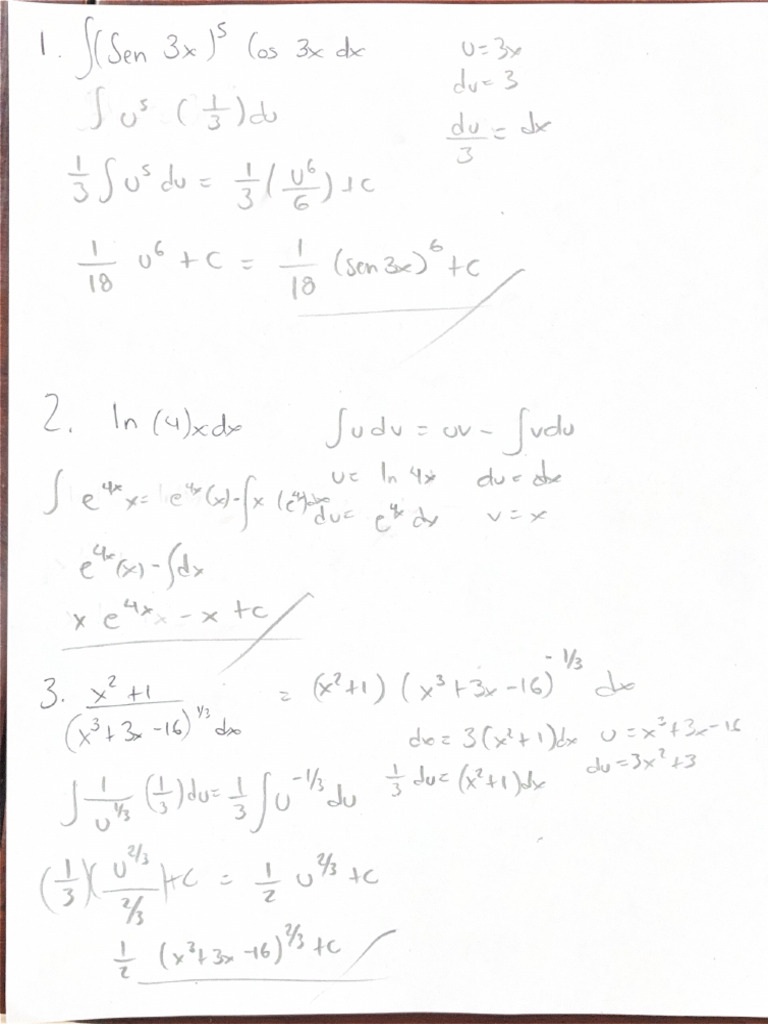 1. ∫(Sen 3x)⁵ Cos 3x dx
u=3x
du=3
∫ u⁵ (1/3)du
du/3 = dx
1/3 ∫ u⁵ du = 1/3 (u⁶/6) + c
1/18 u⁶ + c = 1/18 (sen 3x)⁶ + c
2. ln (4)xdx
∫udv = uv - ∫vdu
u= ln 4x du = dx
∫ e⁴ˣ x= e⁴ˣ(x)-∫x
du= e⁴ˣ dx v=x
e⁴ˣ(x) - ∫dx
x e⁴ˣ - x + c
3. x² + 1 / (x³+3x-16)^1/3 dx = (x²+1) (x³+3x-16)^-1/3 dx
du= 3(x²+1)dx u=x³+3x-16
1/3 du= (x²+1)dx du=3x²+3
∫ 1/u^1/3 (1/3)du= 1/3 ∫u^-1/3 du
(1/3)(u^2/3 / 2/3)+c = 1/2 u^2/3 + c
1/2 (x³+3x-16)^2/3 + c